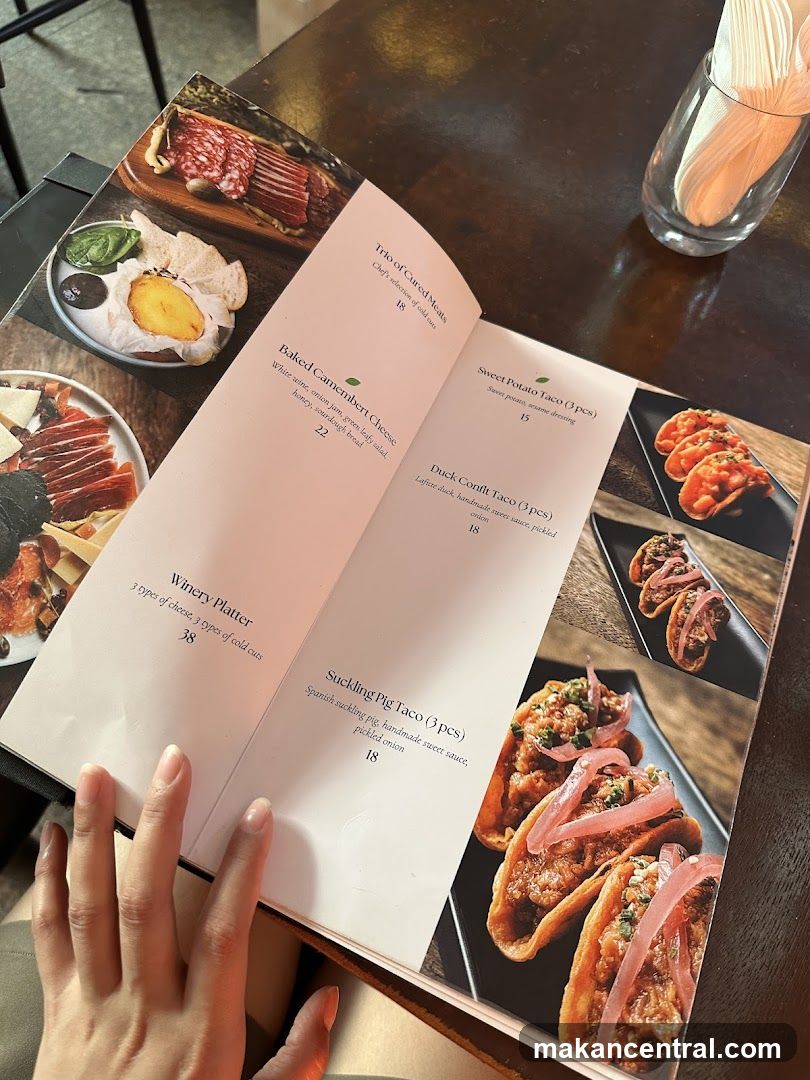 Trio of Cured Meats
Chef's selection of cold cuts
18
Baked Camembert Cheese
White wine, onion jam, green leafy salad,
honey, sourdough bread
22
Winery Platter
3 types of cheese, 3 types of cold cuts
38
Sweet Potato Taco (3 pcs)
Sweet potato, sesame dressing
15
Duck Confit Taco (3 pcs)
Lafitte duck, handmade sweet sauce, pickled
onion
18
Suckling Pig Taco (3 pcs)
Spanish suckling pig, handmade sweet sauce,
pickled onion
18
makancentral.com